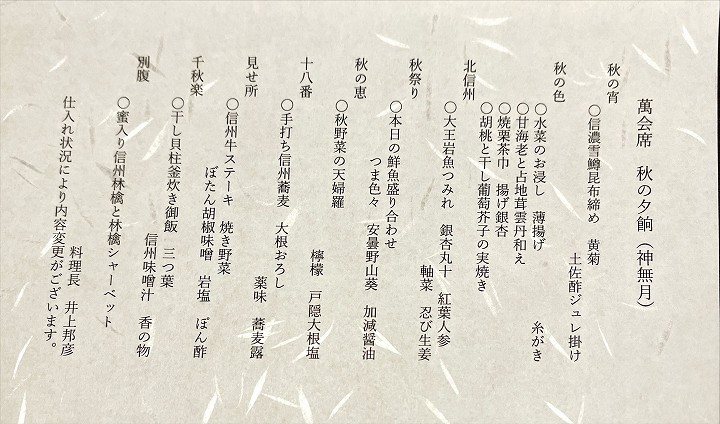 萬会席 秋の夕餉(神無月)
秋の宵
○信濃雪鱒昆布締め 黄菊
土佐酢ジュレ掛け
秋の色
○水菜のお浸し 薄揚げ 糸がき
○甘海老と占地茸雲丹和え
○焼栗茶巾 揚げ銀杏
○胡桃と干し葡萄芥子の実焼き
北信州
○大王岩魚つみれ 銀杏丸十 紅葉人参
軸菜 忍び生姜
秋祭り
○本日の鮮魚盛り合わせ
つま色々 安曇野山葵 加減醤油
秋の恵
○秋野菜の天婦羅
檸檬 戸隠大根塩
十八番
○手打ち信州蕎麦 大根おろし
薬味 蕎麦露
見せ所
○信州牛ステーキ 焼き野菜
ぼたん胡椒味噌 岩塩 ぽん酢
千秋楽
○干し貝柱釜炊き御飯 三つ葉
信州味噌汁 香の物
別腹
○蜜入り信州林檎と林檎シャーベット
料理長 井上邦彦
仕入れ状況により内容変更がございます。